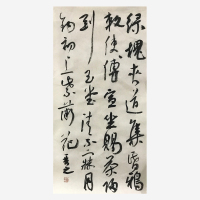 綠槐夾道集昏鴉
敕使傳宣坐賜茶歸
到玉堂清不寐月
鈎初上紫薇花